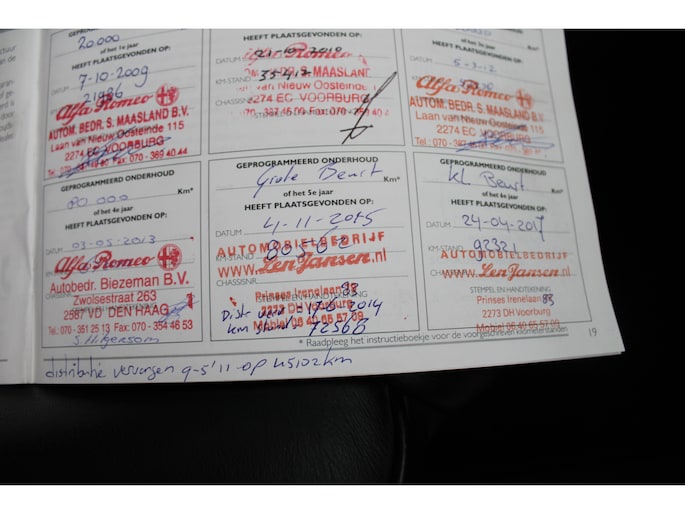 20.000
of het 1e jaar
HEEFT PLAATSGEVONDEN OP:
DATUM 7-10-2009
21986
Alfa Romeo
AUTOM. BEDR. S. MAASLAND B.V.
Laan van Nieuw Oosteinde 115
2274 EC VOORBURG
Tel.: 070 - 387 46 09 Fax: 070 - 369 40 44
HEEFT PLAATSGEVONDEN OP:
DATUM 21-10-2010
KM-STAND 35417
S. MAASLAND
CHASSISNR.
van Nieuw Oosteinde
2274 EC VOORBURG
Fax: 070-
of het 3e jaar
HEEFT PLAATSGEVONDEN OP:
DATUM
Alfa Romeo
AUTOM. BEDR. S. MAASLAND B.V.
Laan van Nieuw Oosteinde 115
2274 EC VOORBURG
GEPROGRAMMEERD ONDERHOUD
80.000 Km*
of het 4e jaar
HEEFT PLAATSGEVONDEN OP:
DATUM 03-05-2013
Alfa Romeo
Autobedr. Biezeman B.V.
Zwolsestraat 263
2587 VD DEN HAAG
Tel.: 070 - 351 25 13 Fax: 070 - 354 46 53
GEPROGRAMMEERD ONDERHOUD
Grote Beurt Km*
of het 5e jaar
HEEFT PLAATSGEVONDEN OP:
DATUM 4-11-2015
AUTOMOBIELBEDRIJF
80502
www.Len Jansen.nl
CHASSISNR.
STEMPEL EN HANDTEKENING
Prinses Irenelaan 93
2273 DH Voorburg
Mobiel 06 40 65 57 09
72566
GEPROGRAMMEERD ONDERHOUD
KL Beurt Km*
of het 6e jaar
HEEFT PLAATSGEVONDEN OP:
DATUM 24-04-2017
KM-STAND 92321
AUTOMOBIELBEDRIJF
CHASSISNR.
www.Len Jansen.nl
STEMPEL EN HANDTEKENING
Prinses Irenelaan 93
2273 DH Voorburg
Mobiel 06 40 65 57 09
* Raadpleeg het instructieboekje voor de voorgeschreven kilometerstanden 19
distributie vervangen 9-5'11 op 45102km